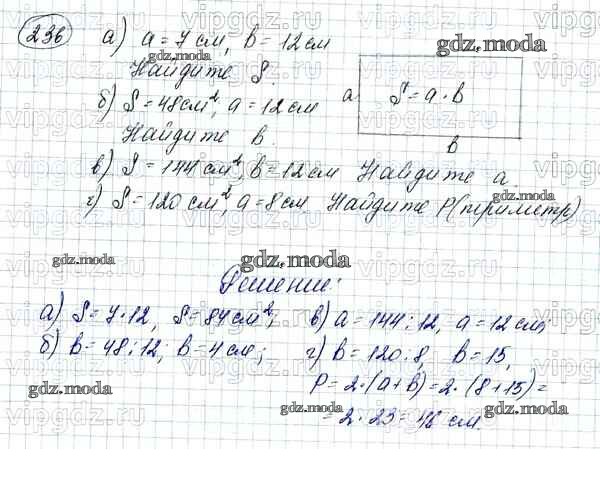 236 а) a = 7 см, b = 12 см
Найдите S.
б) S = 48 см², a = 12 см
Найдите b.
a S = a · b
b
в) S = 144 см², b = 12 см Найдите a.
г) S = 120 см², a = 8 см Найдите P (периметр)
Решение:
а) S = 7 · 12, S = 84 см²;
б) b = 48 : 12, b = 4 см;
в) a = 144 : 12, a = 12 см;
г) b = 120 : 8, b = 15,
P = 2 · (a + b) = 2 · (8 + 15) =
= 2 · 23 = 46 см.
gdz.moda
gdz.moda
gdz.moda
gdz.moda
gdz.moda
gdz.moda
gdz.moda
gdz.moda
gdz.moda
vipgdz.ru
vipgdz.ru
vipgdz.ru